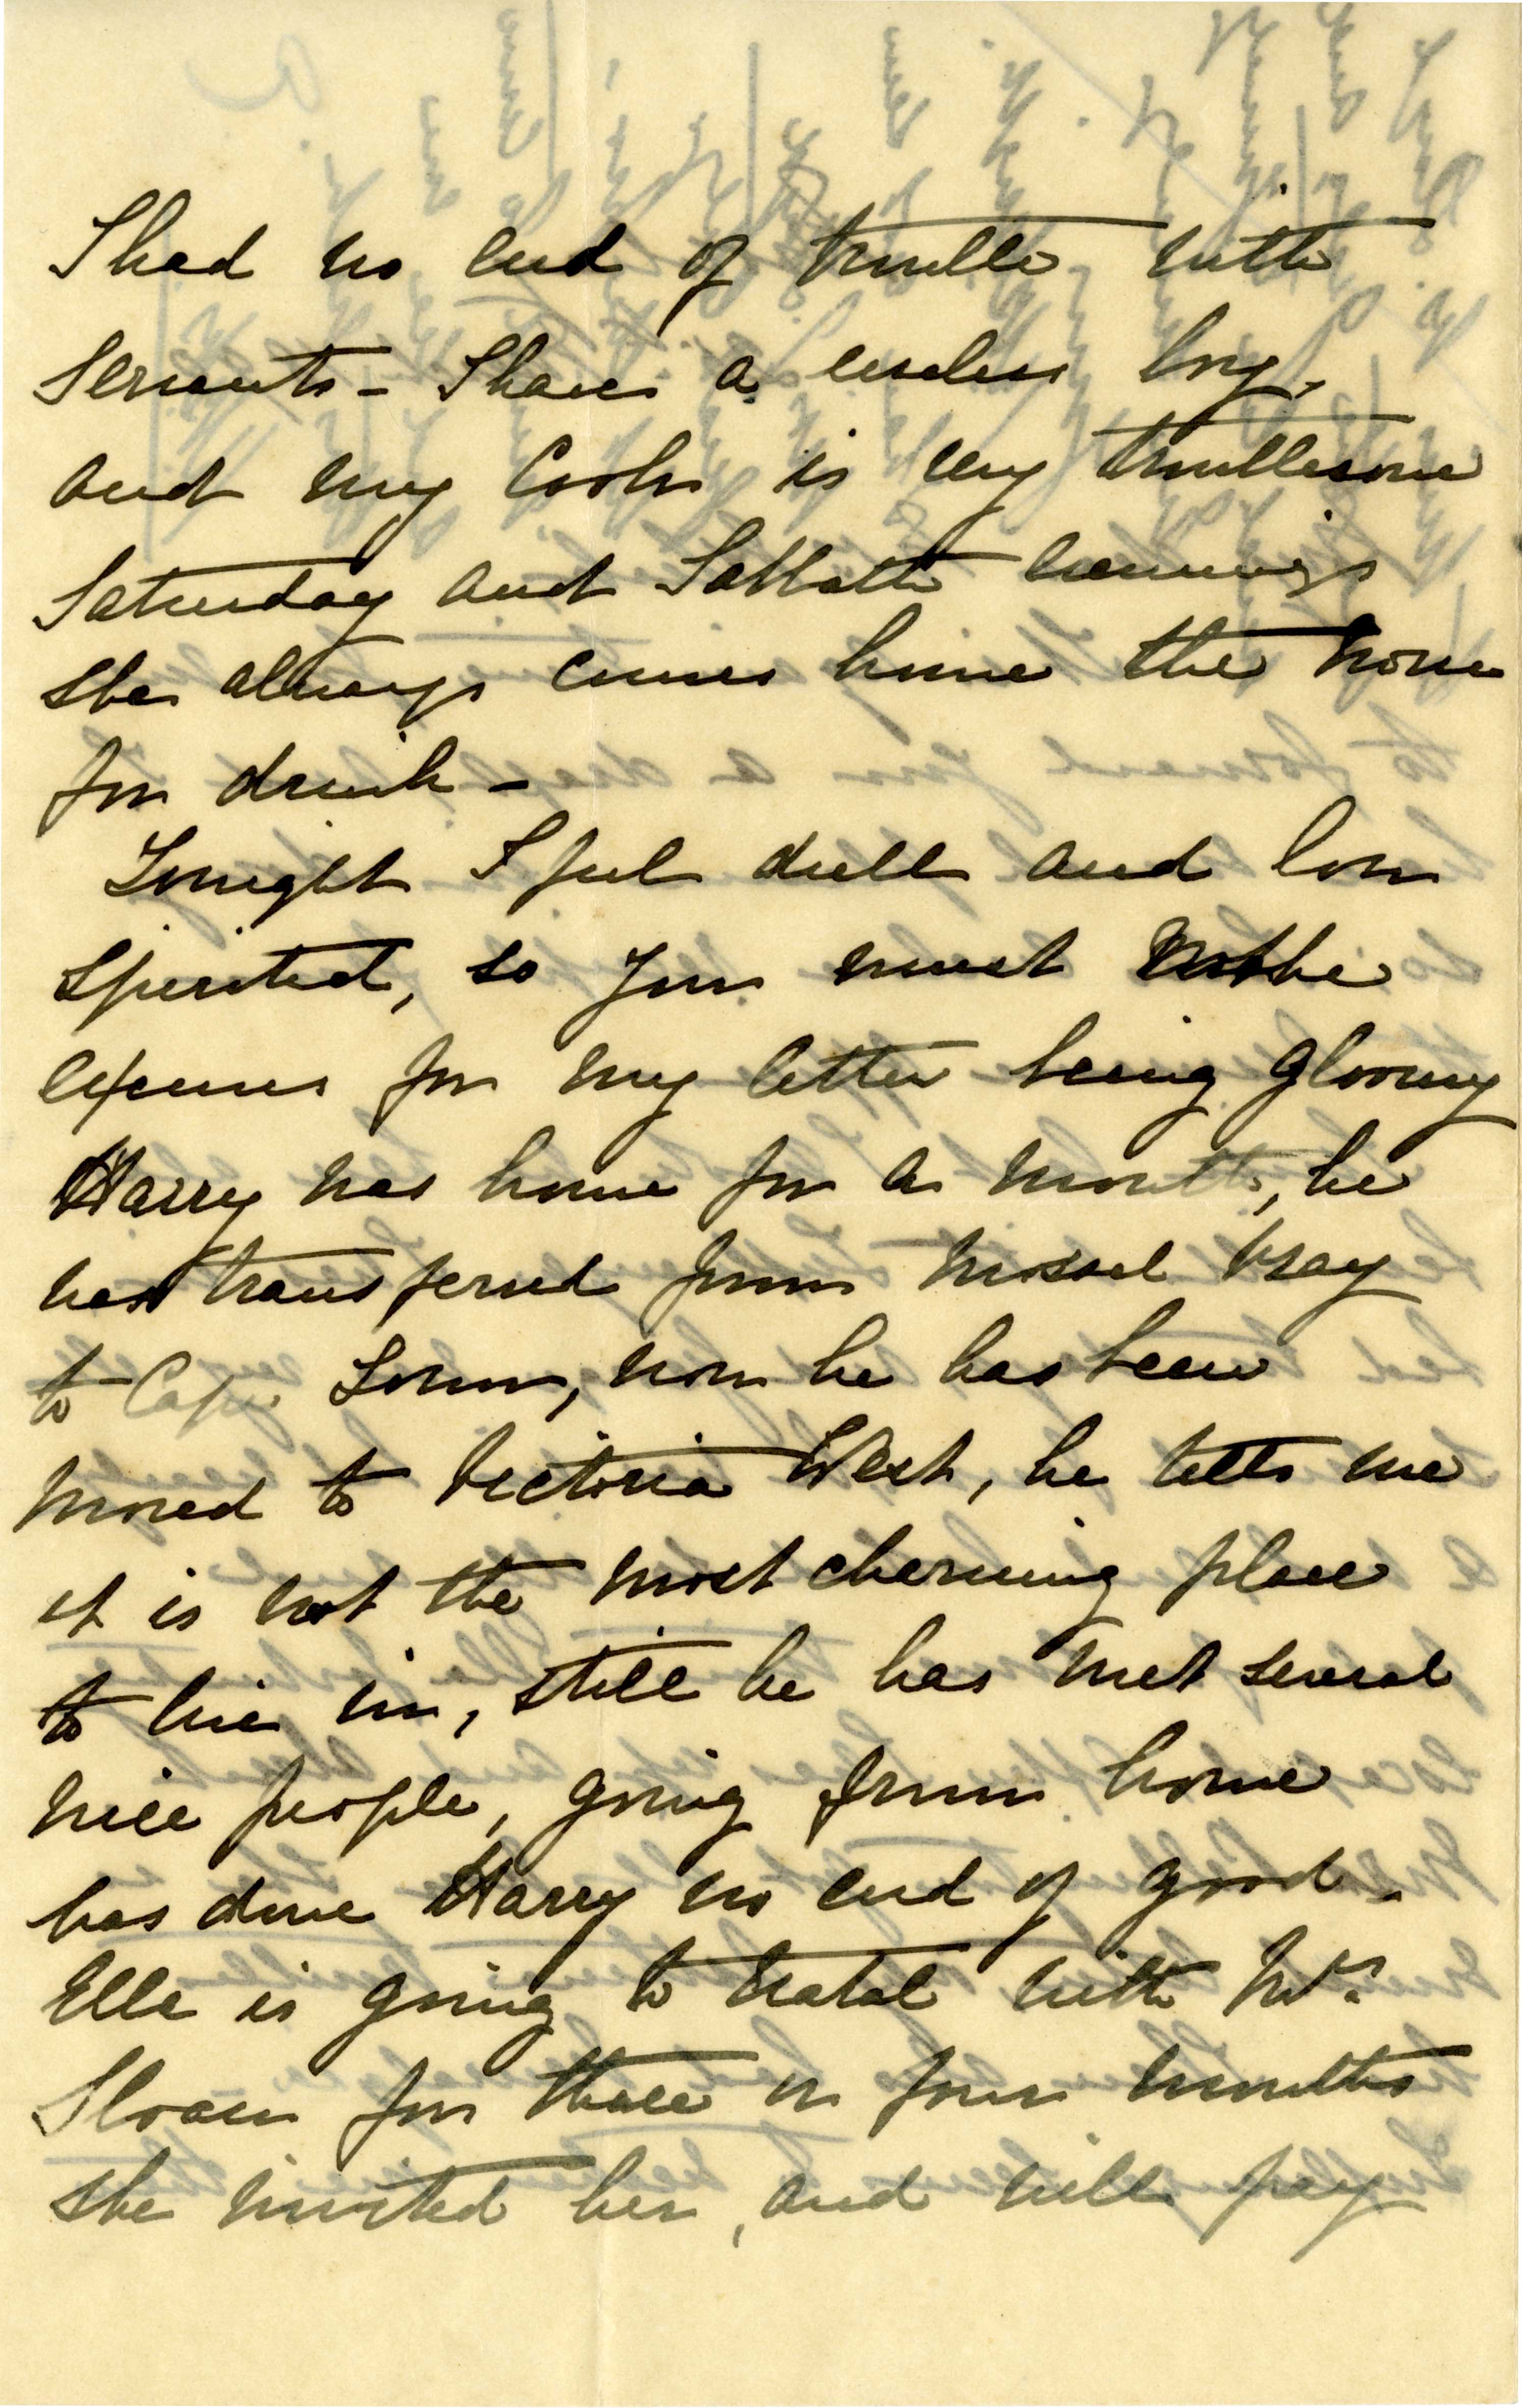 I had no end of trouble with
servants - I have a useless boy,
and my Cook is very troublesome
Saturday and Sabbath evenings
she always comes home the worse
for drink -
Tonight I feel dull and low
spirited, so you must make
excuses for my letter being gloomy
Harry was home for a month, he
was transferred from Mossel Bay
to Cape Town, now he has been
moved to Victoria West, he tells me
it is not the most charming place
to live in, still he has met several
nice people, going from home
has done Harry no end of good.
Effe is going to Natal with Mrs.
Sloan for three or four months
she invited her, and will pay